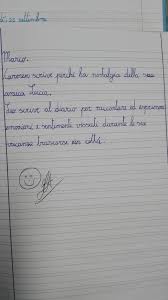 22 settembre
Mario.
Lorenzo scrive perché ha nostalgia della sua
amica Lucia,
Leo scrive al diario per raccontare ed esprimere
emozioni e sentimenti vissuti durante le sue
vacanze trascorse in città.